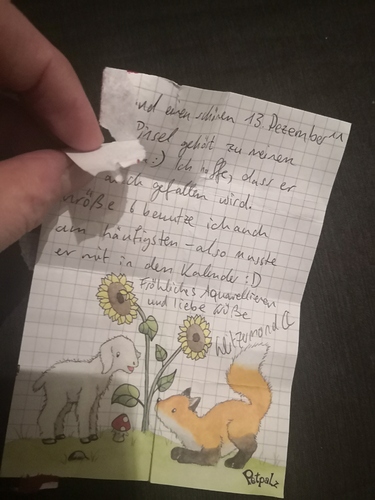 nd einen schönen 13. Dezember
Pinsel gehört zu meinen
:) Ich hoffe, dass er
auch gefallen wird.
Größe 6 benutze ich auch
am häufigsten - also musste
er mit in den Kalender :D
Fröhliches Aquarellieren
und liebe Grüße
Petpalz